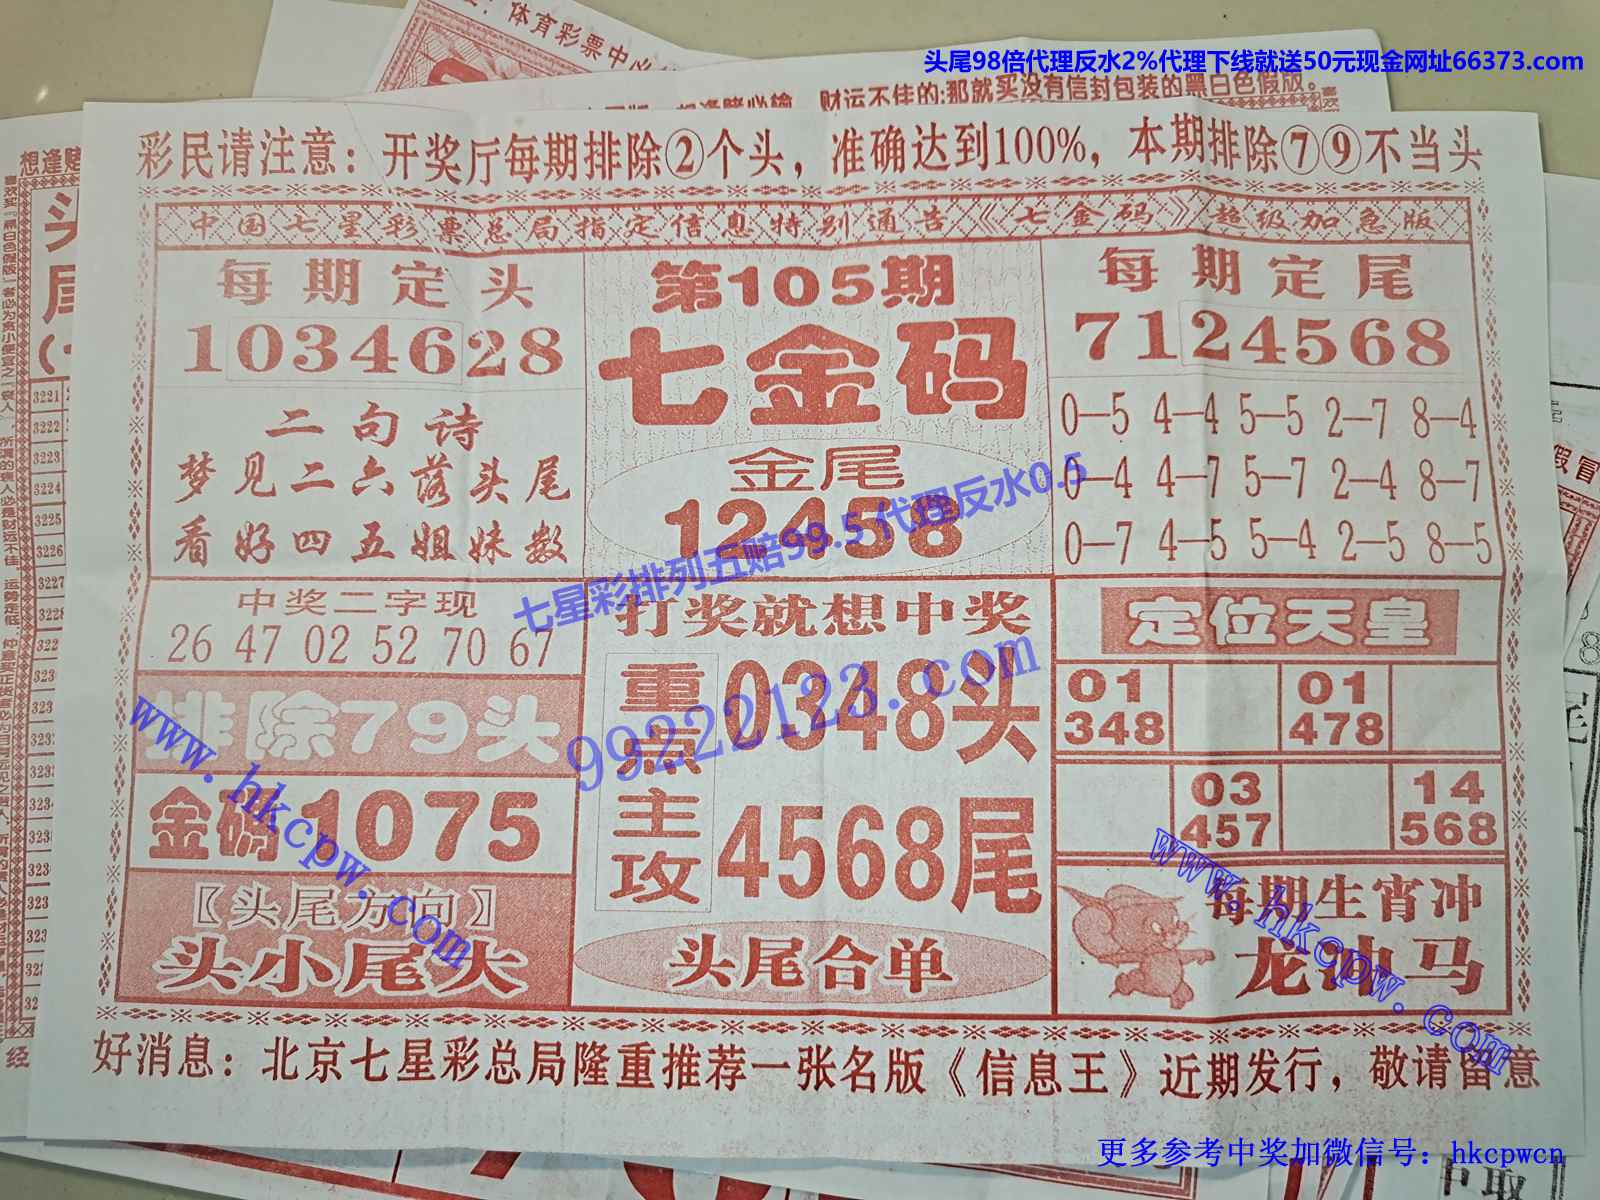 头尾98倍代理反水2%代理下线就送50元现金网址66373.com
体育彩票中必
财运不佳的:那就买没有信封包装的黑白色假版。
彩民请注意：开奖厅每期排除②个头，准确达到100%，本期排除⑦⑨不当头
中国七星彩票总局指定信息特别通告《七金码》超级加急版
每期定头
1034628
二句诗
梦见二六落头尾
看好四五姐妹数
第105期
七金码
金尾
12458
每期定尾
7124568
0—5 4—4 5—5 2—7 8—4
0—4 4—7 5—7 2—4 8—7
0—7 4—5 5—4 2—5 8—5
七星彩排列五赔99.5代理反水0.5
99222123.com
中奖二字现
26 47 02 52 70 67
排除79头
金码1075
【头尾方向】
头小尾大
打奖就想中奖
重点主攻
0348头
4568尾
头尾合单
定位天皇
01 01
348 478
03 14
457 568
每期生肖冲
龙冲马
www.hkcpw.com
www.hkcpw.com
好消息：北京七星彩总局隆重推荐一张名版《信息王》近期发行，敬请留意
更多参考中奖加微信号：hkcpwcn
3221
3222
3223
3224
3225
3226
3227